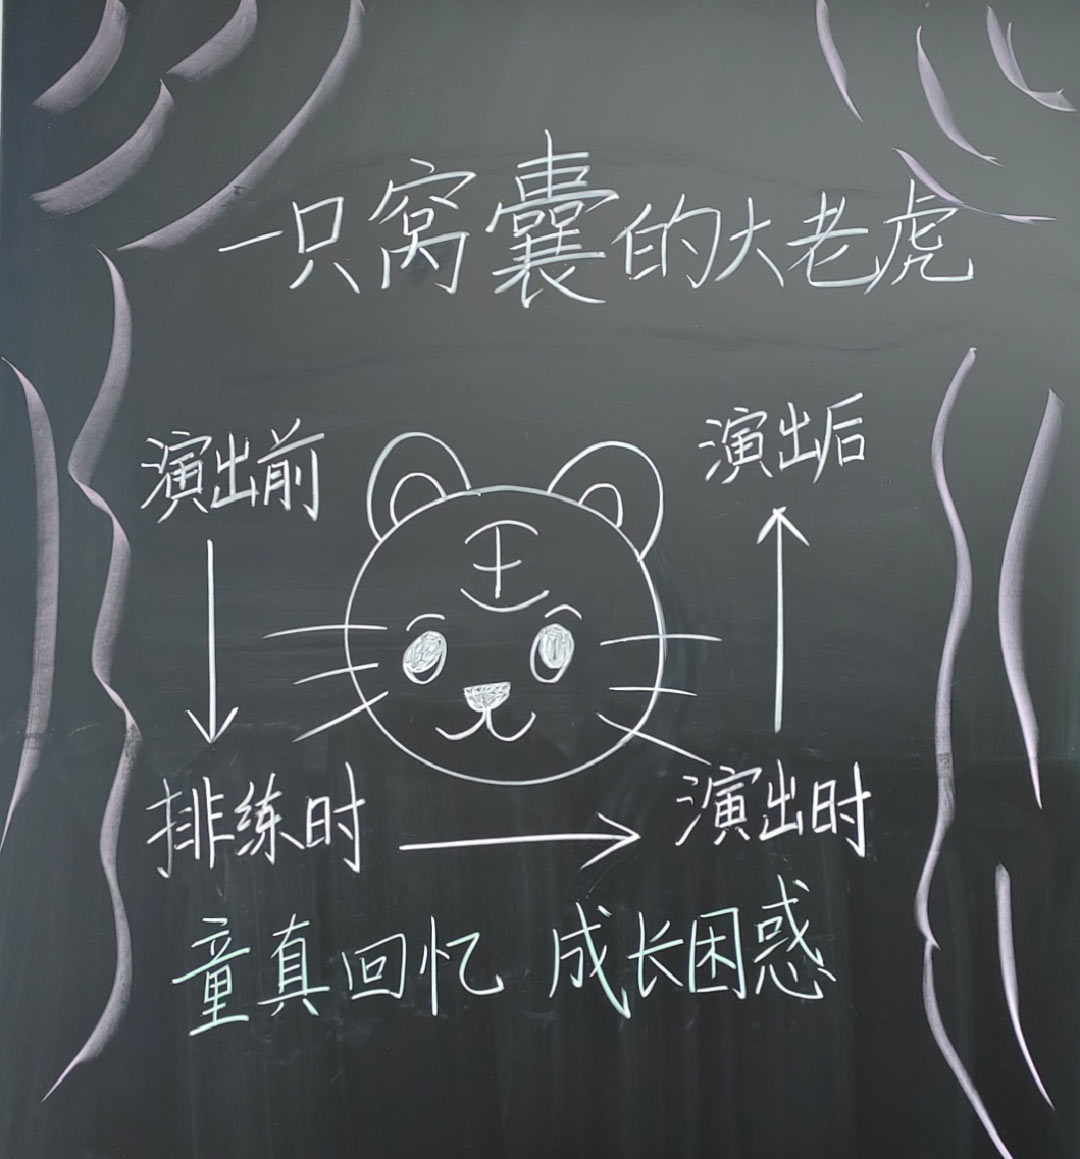 一只窝囊的大老虎
演出前
演出后
王
排练时
演出时
童真回忆 成长困惑